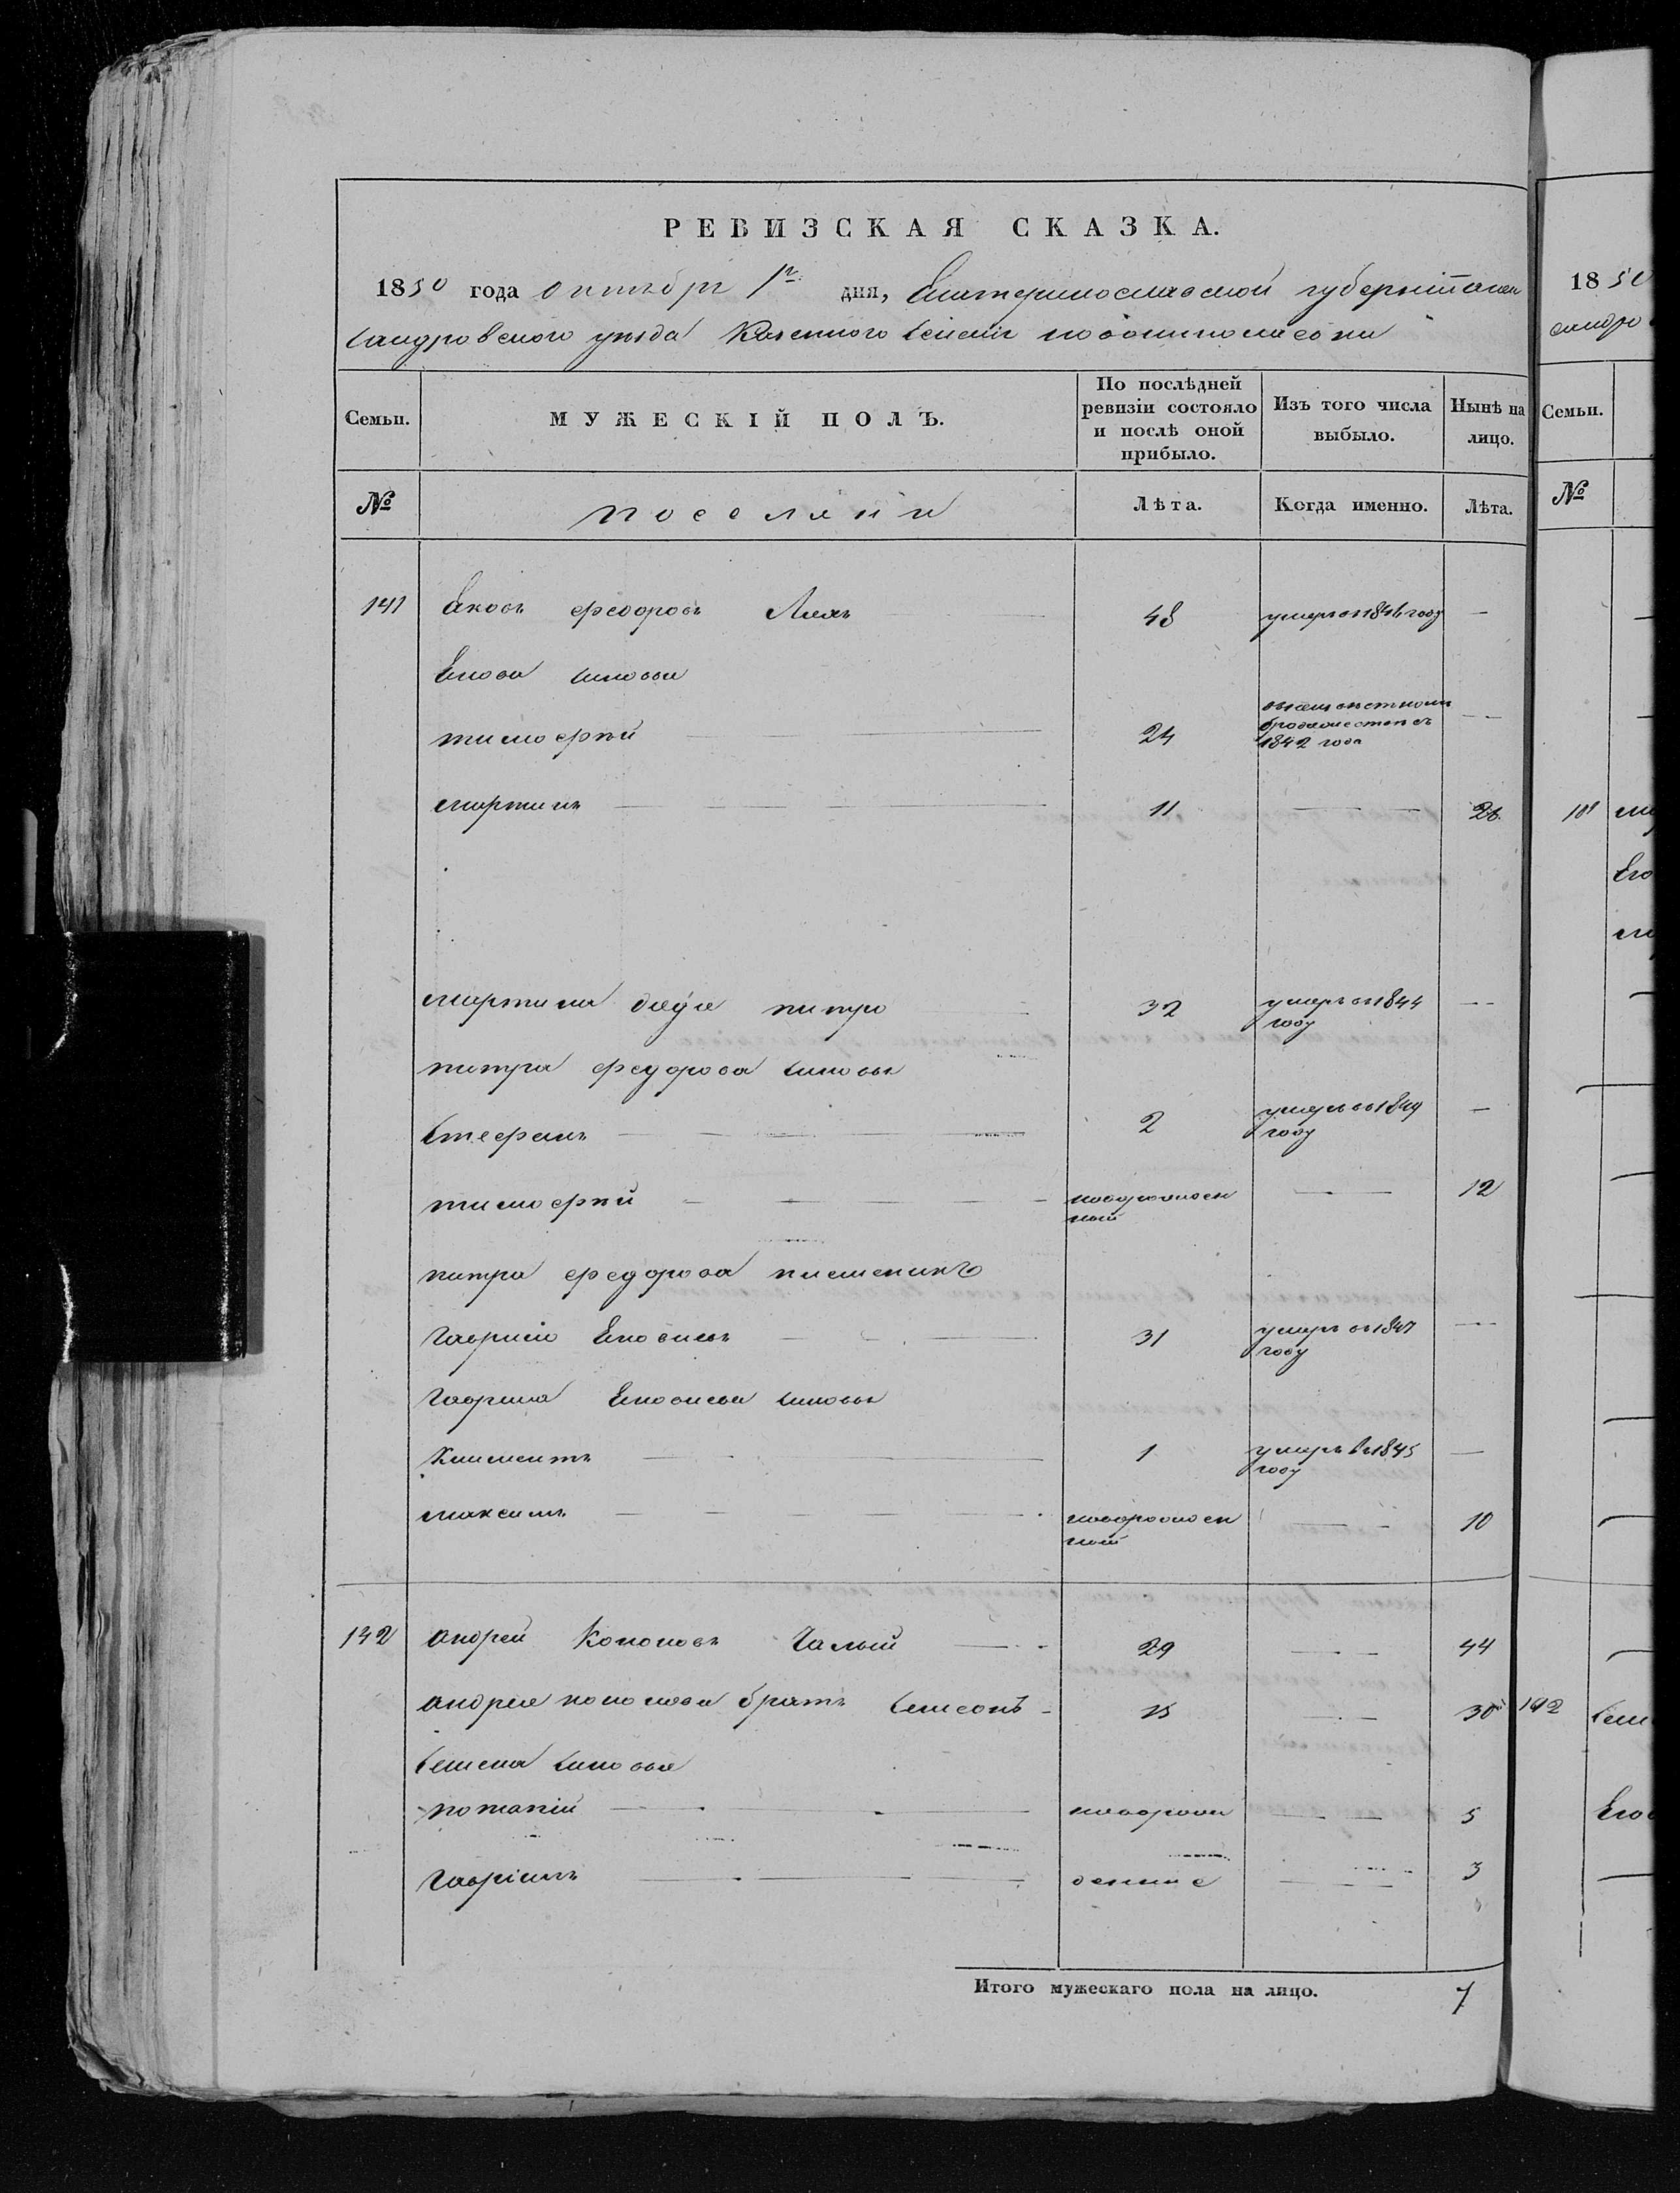 РЕВИЗСКАЯ СКАЗКА.
1850 года октября 1го дня, Екатеринославской губернии Алек
сандровского уезда Казенного селения
Семьи. МУЖЕСКІЙ ПОЛЪ. По послѣдней ревизіи состояло и послѣ оной прибыло. Изъ того числа выбыло. Нынѣ на лицо.
№ поселяни Лѣта. Когда именно. Лѣта.
141 Яковъ федоровъ 48 умеръ въ 1846 году —
Якова сыновья
тимофѣй 24 1842 года —
мартинъ 11 — 26
мартина дядя питро 32 умеръ въ 1844 году —
питра федорова сыновья
Стефанъ 2 умеръ въ 1849 году —
тимофѣй новорожденный — 12
питра федорова племеникъ
Гаврило Яковлевъ 31 умеръ въ 1847 году —
Гаврила Яковлева сыновья
Климентъ 1 умеръ въ 1845 году —
максимъ новорожденный — 10
142 андрей Кононовъ Чалый 29 — 44
андрея кононова братъ Семенъ 15 — 30
Семена сыновья
потапій новорож — 5
Гавріилъ денние — 3
Итого мужескаго пола на лицо. 7
1850
сандро
Семьи.
№
141
Его
142 Сем
Его